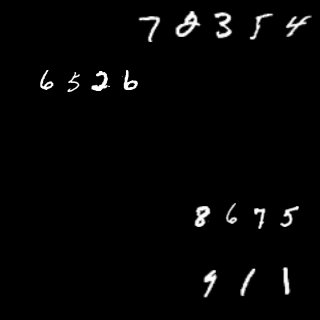 78354
6526
8675
911